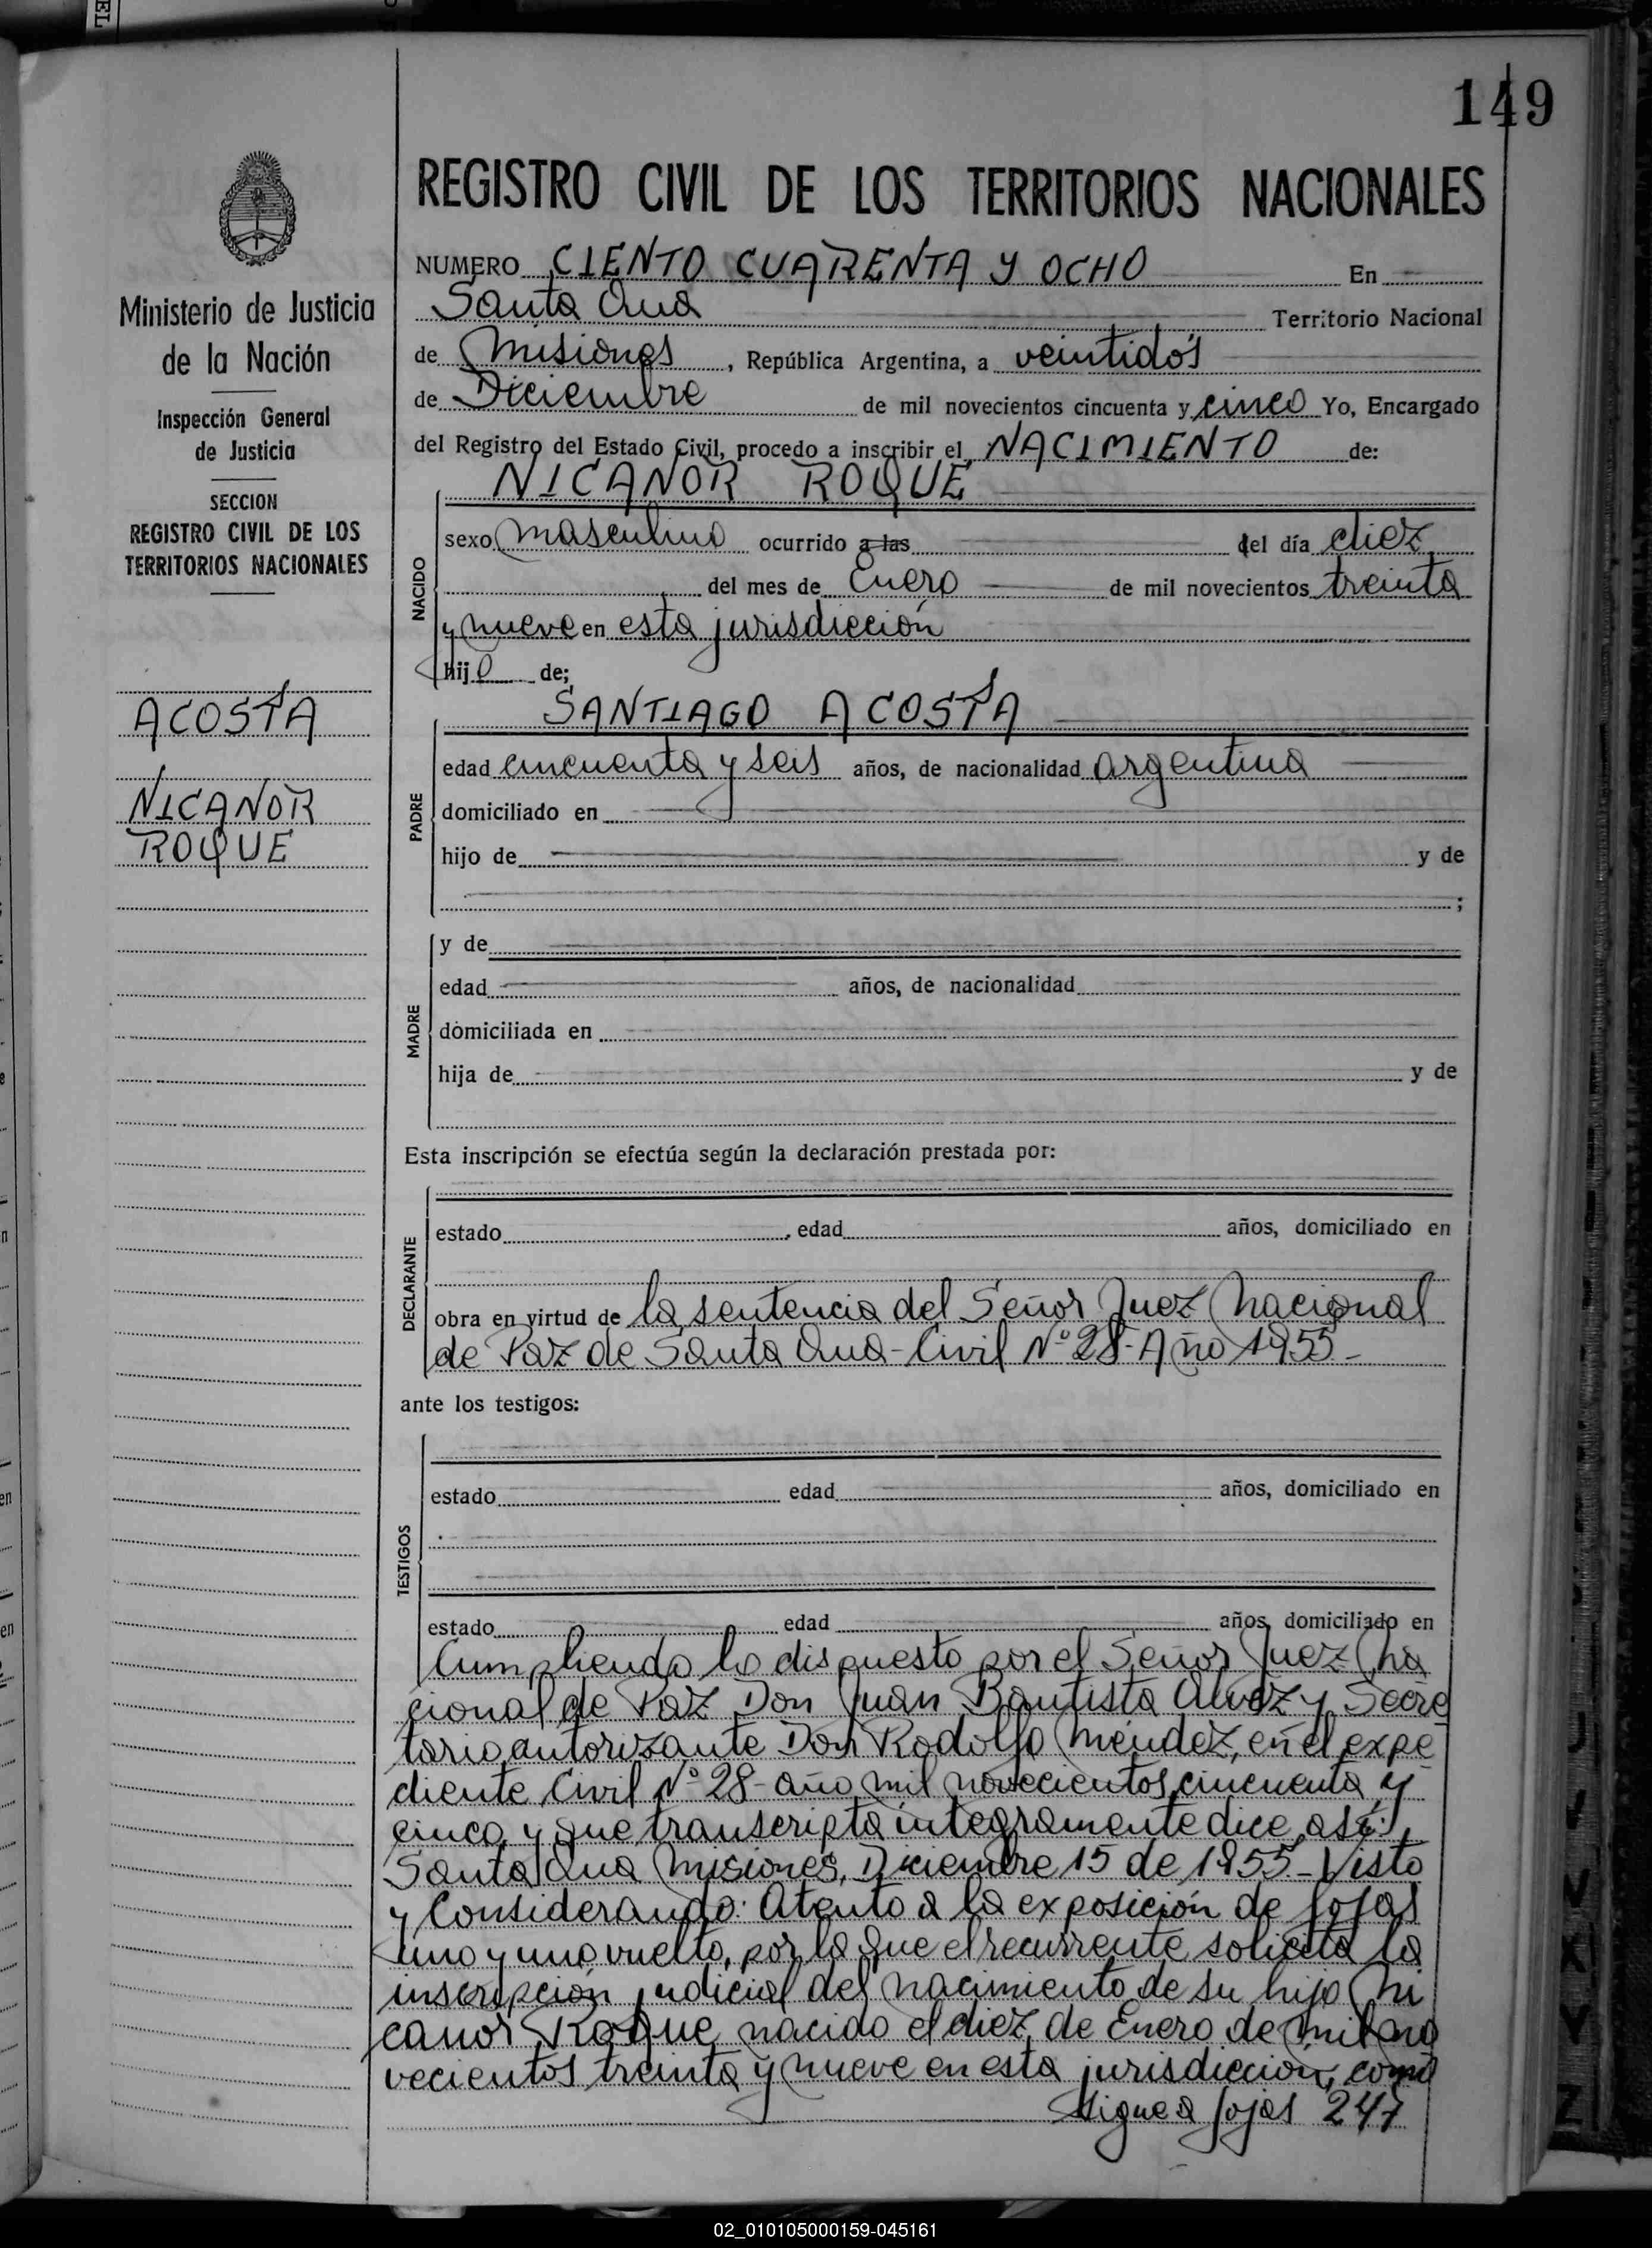 149
REGISTRO CIVIL DE LOS TERRITORIOS NACIONALES
Ministerio de Justicia
de la Nación
Inspección General
de Justicia
SECCION
REGISTRO CIVIL DE LOS
TERRITORIOS NACIONALES
ACOSTA
NICANOR
ROQUE
NUMERO CIENTO CUARENTA Y OCHO En
Santa Ana Territorio Nacional
de Misiones, República Argentina, a veintidós
de Diciembre de mil novecientos cincuenta y cinco Yo, Encargado
del Registro del Estado Civil, procedo a inscribir el NACIMIENTO de:
NICANOR ROQUE
NACIDO
sexo masculino ocurrido a las del día diez
del mes de Enero de mil novecientos treinta
y nueve en esta jurisdicción
hijo de;
SANTIAGO ACOSTA
PADRE
edad cincuenta y seis años, de nacionalidad argentina
domiciliado en
hijo de y de
;
MADRE
y de
edad años, de nacionalidad
domiciliada en
hija de y de
Esta inscripción se efectúa según la declaración prestada por:
DECLARANTE
estado , edad años, domiciliado en
obra en virtud de la sentencia del Señor Juez Nacional
de Paz de Santa Ana - Civil Nº 28 - Año 1955 -
ante los testigos:
TESTIGOS
estado edad años, domiciliado en
estado edad años, domiciliado en
Cumpliendo lo dispuesto por el Señor Juez Na
cional de Paz Don Juan Bautista Alvez y Secre
tario autorizante Don Rodolfo Méndez, en el expe
diente Civil Nº 28 - año mil novecientos cincuenta y
cinco y que transcripta íntegramente dice así:
Santa Ana Misiones, Diciembre 15 de 1955 - Visto
y Considerando: Atento a la exposición de fojas
uno y uno vuelto, por la que el recurrente solicita la
inscripción judicial del nacimiento de su hijo Ni
canor Roque nacido el diez de Enero de mil no
vecientos treinta y nueve en esta jurisdicción, como
Sigue a fojas 247
02_010105000159-045161